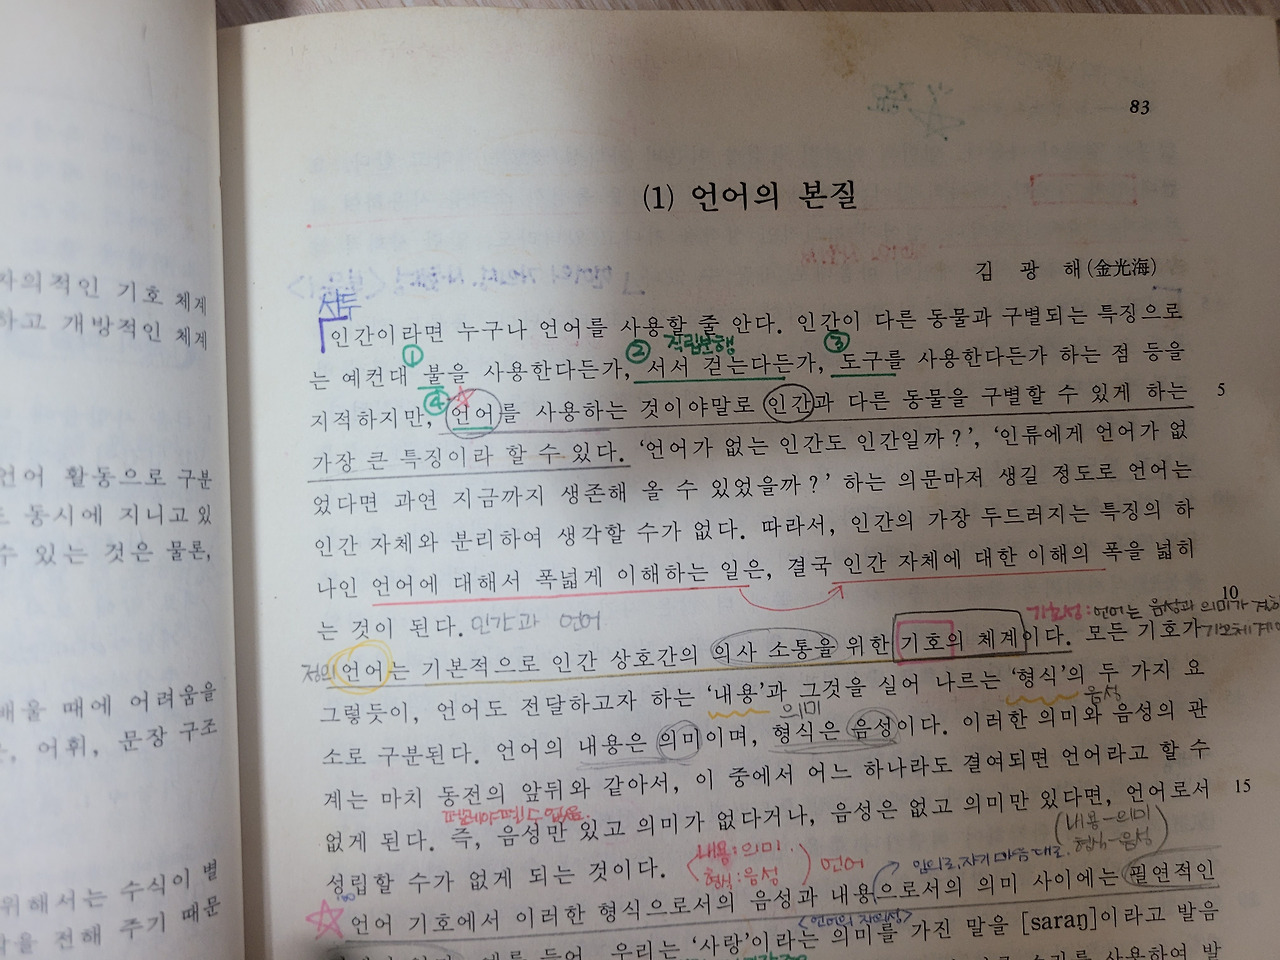 자의적인 기호 체계
하고 개방적인 체계
언어 활동으로 구분
동시에 지니고 있
수 있는 것은 물론,
배울 때에 어려움을
어휘, 문장 구조
위해서는 수식이 별
전해 주기 때문
83
(1) 언어의 본질
김 광 해(金光海)
서두
인간이라면 누구나 언어를 사용할 줄 안다. 인간이 다른 동물과 구별되는 특징으로
① ② 직립보행 ③
는 예컨대 불을 사용한다든가, 서서 걷는다든가, 도구를 사용한다든가 하는 점 등을
④
지적하지만, 언어를 사용하는 것이야말로 인간과 다른 동물을 구별할 수 있게 하는 5
가장 큰 특징이라 할 수 있다. ‘언어가 없는 인간도 인간일까?’, ‘인류에게 언어가 없
었다면 과연 지금까지 생존해 올 수 있었을까?’ 하는 의문마저 생길 정도로 언어는
인간 자체와 분리하여 생각할 수가 없다. 따라서, 인간의 가장 두드러지는 특징의 하
나인 언어에 대해서 폭넓게 이해하는 일은, 결국 인간 자체에 대한 이해의 폭을 넓히
는 것이 된다. 인간과 언어 10
기호성: 언어는 음성과 의미가
정의 언어는 기본적으로 인간 상호간의 의사 소통을 위한 기호의 체계이다. 모든 기호가
그렇듯이, 언어도 전달하고자 하는 ‘내용’과 그것을 실어 나르는 ‘형식’의 두 가지 요
의미 음성
소로 구분된다. 언어의 내용은 의미이며, 형식은 음성이다. 이러한 의미와 음성의 관
계는 마치 동전의 앞뒤와 같아서, 이 중에서 어느 하나라도 결여되면 언어라고 할 수 15
떼레야 뗄 수 없음.
없게 된다. 즉, 음성만 있고 의미가 없다거나, 음성은 없고 의미만 있다면, 언어로서
내용-의미
형식-음성
성립할 수가 없게 되는 것이다.
내용: 의미
형식: 음성
언어
임의로, 자기 마음대로.
언어 기호에서 이러한 형식으로서의 음성과 내용으로서의 의미 사이에는 필연적인
<언어의 자의성>
우리는 ‘사랑’이라는 의미를 가진 말을 [saraŋ]이라고 발음
사용하여 발